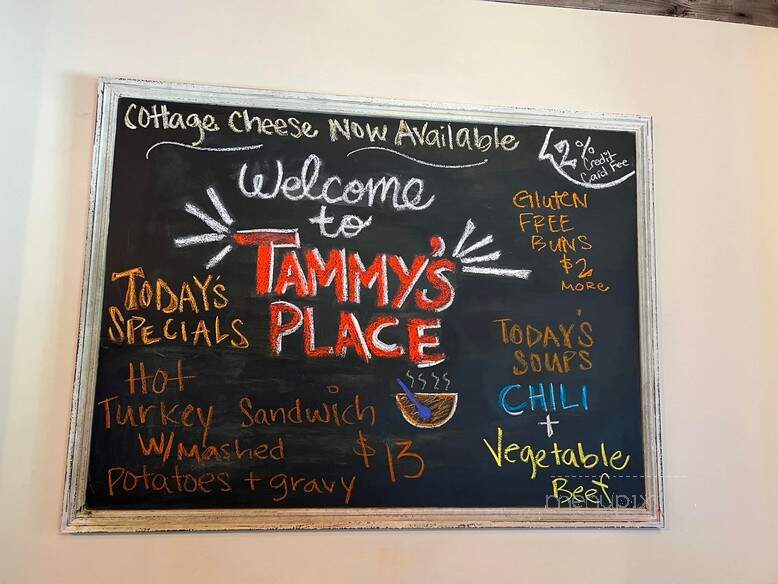 Cottage Cheese Now Available
2% Credit
Card Fee
Welcome
to
TAMMY'S
PLACE
GLUTEN
FREE
BUNS
$2
MORE
TODAY'S
SPECIALS
Hot
Turkey Sandwich
W/Mashed
Potatoes + gravy
$13
TODAY'S
SOUPS
CHILI
+
Vegetable
Beef
menupix